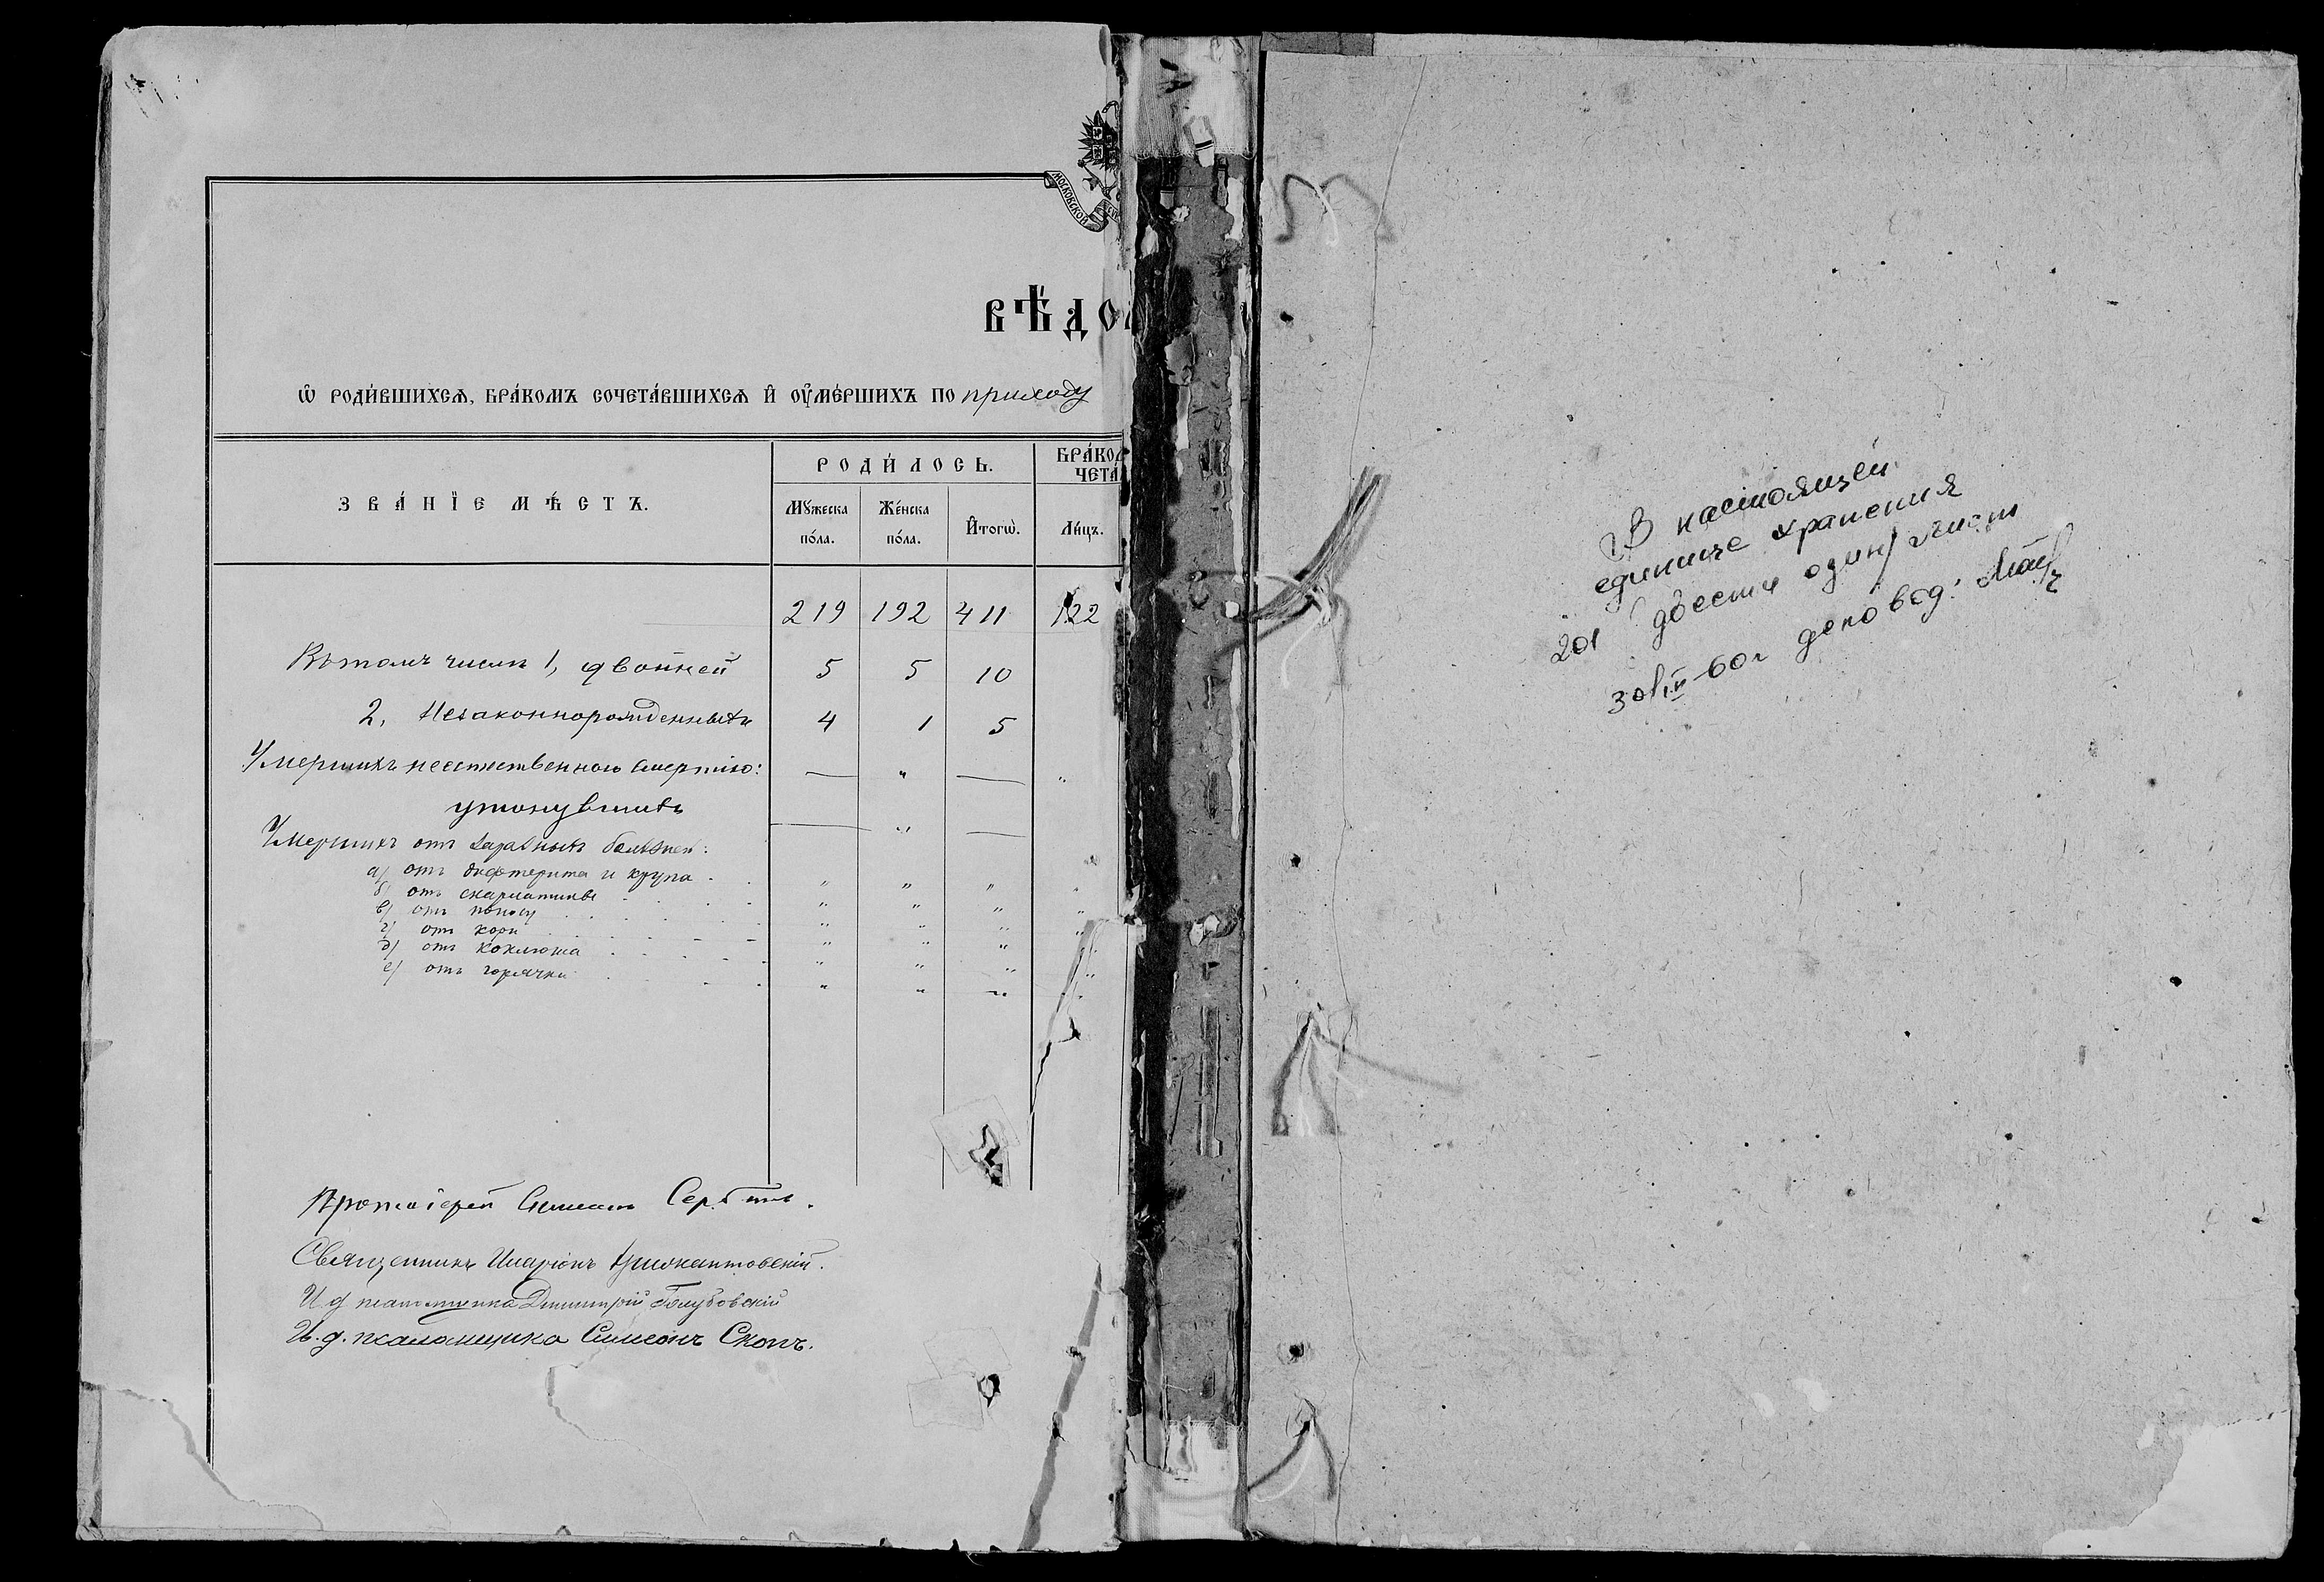 МОСКОВСКОЙ
ВѢДО
Ѿ РОДИ́ВШИХСѦ, БРА́КОМЪ СОЧЕТА́ВШИХСѦ И҆ ОУ҆МЕ́РШИХЪ ПО приходу
ЗВА́НІЕ МѢ́СТЪ.
РОДИ́ЛОСЬ.
БРА́КОМ
ЧЕТА́
Мꙋ́жеска по́ла.
Же́нска по́ла.
И҆тогѡ̀.
Ли́цъ.
219 192 411 122
Въ томъ числѣ 1, двойней 5 5 10
2, Незаконнорожденныхъ 4 1 5
Умершихъ неестественною смертію: — " — "
утонувшихъ — " —
Умершихъ отъ заразныхъ болѣзней:
а) отъ дифтерита и крупа " " " "
б) отъ скарлатины " " " "
в) отъ поносу " " " "
г) отъ кори " " " "
д) отъ коклюша " " " "
е) отъ горячки " " " "
Протоіерей Симеонъ
Священникъ Иларіонъ
И. д. псаломщика Димитрій Голубовскій
И. д. псаломщика Симеонъ Скопъ.
В настоящей
единице хранения
201 (двести один) лист
30/IV-60г деловод: